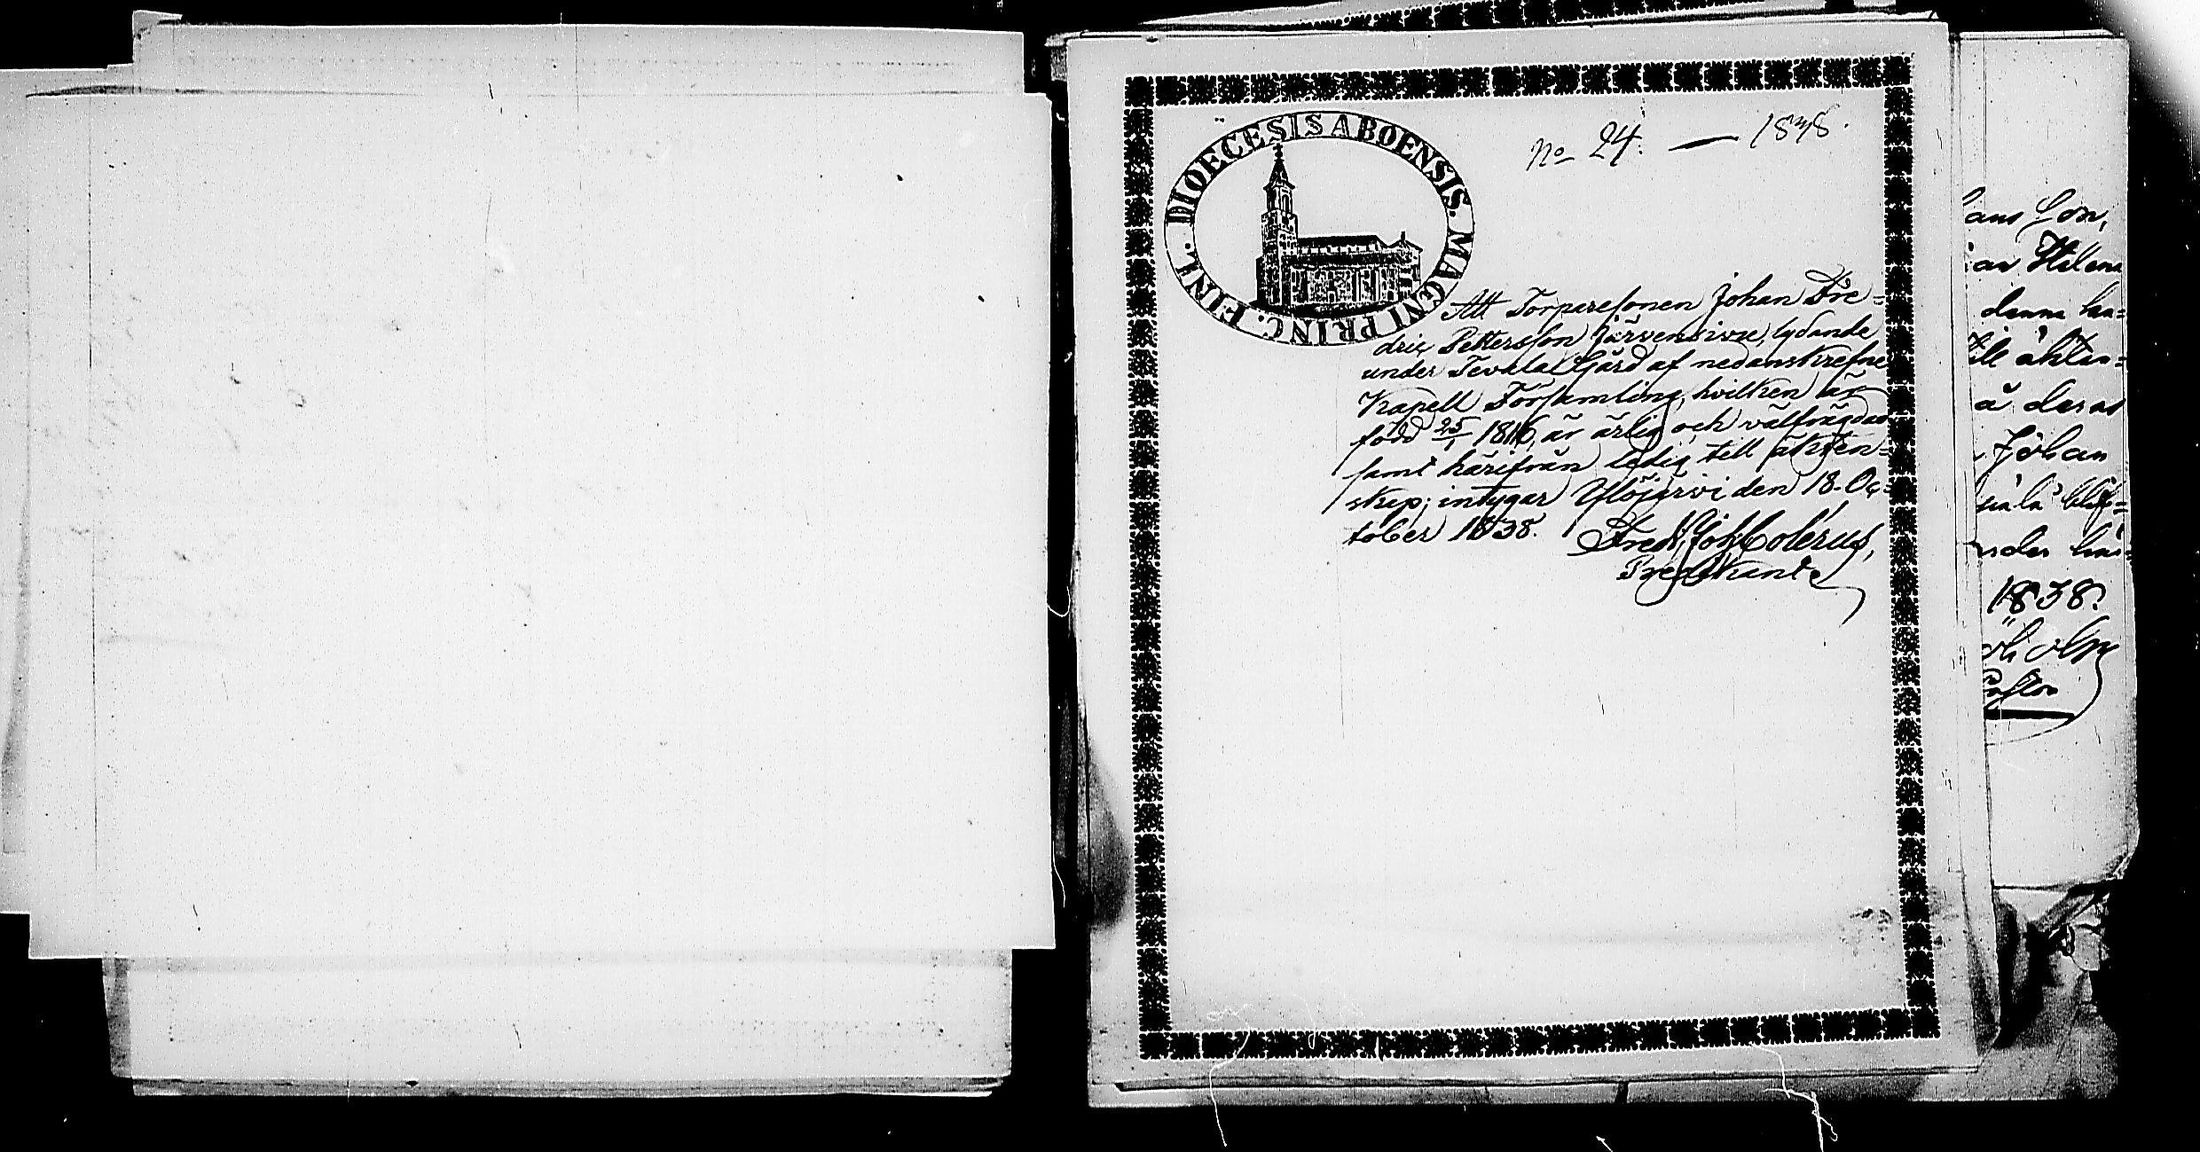 No 24. — 1838.
DIOECESIS ABOENSIS. MAGNI PRINC. FINL.
Att Torparesonen Johan Fre=
dric Pettersson Järvensivu, lydande
under Tevala Gård af nedanskrefne
Kapell Församling, hvilken är
född 25/1 1816, är ärlig och välfrägdad
samt härifrån ledig till äkten=
skap; intygar Ylöjärvi den 18. Oc=
tober 1838.
Fred. Joh.
Predikant
ans Son,
Helena
denna
till äkten=
å deras
Johan
1838.
Pastor